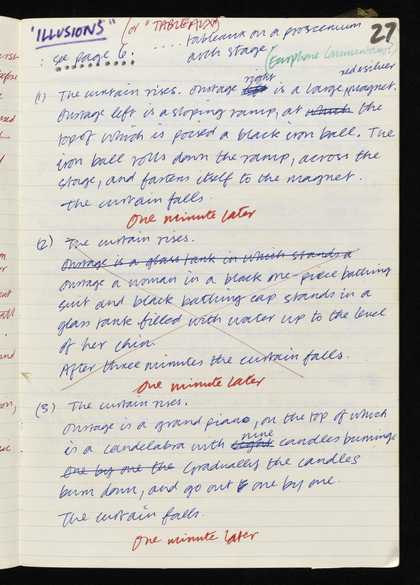 27
"ILLUSIONS" (or "TABLEAUX")
: see page 6. .... tableaux on a proscenium
arch stage
(Earphone Commentary?)
(1) The curtain rises. Onstage right is a large, red & silver magnet.
Onstage left is a sloping ramp, at which the
top of which is poised a black iron ball. The
iron ball rolls down the ramp, across the
stage, and fastens itself to the magnet.
The curtain falls.
One minute later
(2) The curtain rises.
Onstage is a glass tank in which stands a
Onstage a woman in a black one-piece bathing
suit and black bathing cap stands in a
glass tank filled with water up to the level
of her chin.
After three minutes the curtain falls.
One minute later
(3) The curtain rises.
Onstage is a grand piano, on the top of which
is a candelabra with eight nine candles burning.
One by one the Gradually the candles
burn down, and go out one by one.
The curtain falls.
One minute later